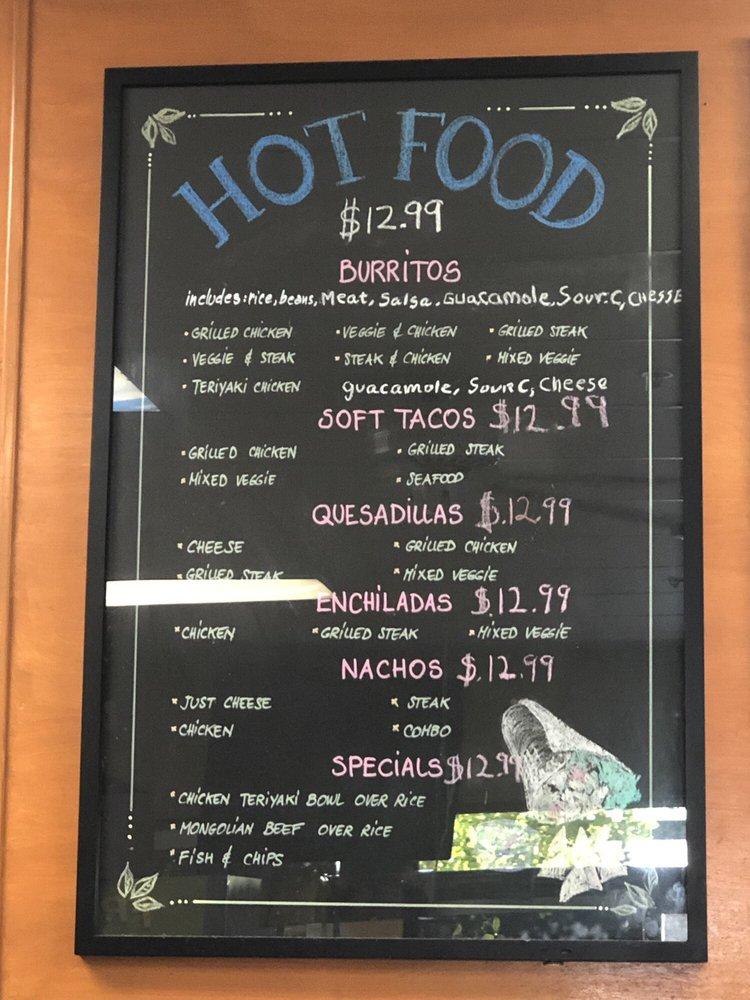 HOT FOOD
$12.99
BURRITOS
includes: rice, beans, Meat, Salsa. Guacamole, Sour.C, CHESSE
• GRILLED CHICKEN • VEGGIE & CHICKEN • GRILLED STEAK
• VEGGIE & STEAK • STEAK & CHICKEN • MIXED VEGGIE
• TERIYAKI CHICKEN guacamole, Sour C, Cheese
SOFT TACOS $12.99
• GRILLED CHICKEN • GRILLED STEAK
• MIXED VEGGIE • SEAFOOD
QUESADILLAS $.12.99
• CHEESE • GRILLED CHICKEN
• GRILLED STEAK • MIXED VEGGIE
ENCHILADAS $.12.99
• CHICKEN • GRILLED STEAK • MIXED VEGGIE
NACHOS $.12.99
• JUST CHEESE • STEAK
• CHICKEN • COMBO
SPECIALS $12.99
• CHICKEN TERIYAKI BOWL OVER RICE
• MONGOLIAN BEEF OVER RICE
• FISH & CHIPS